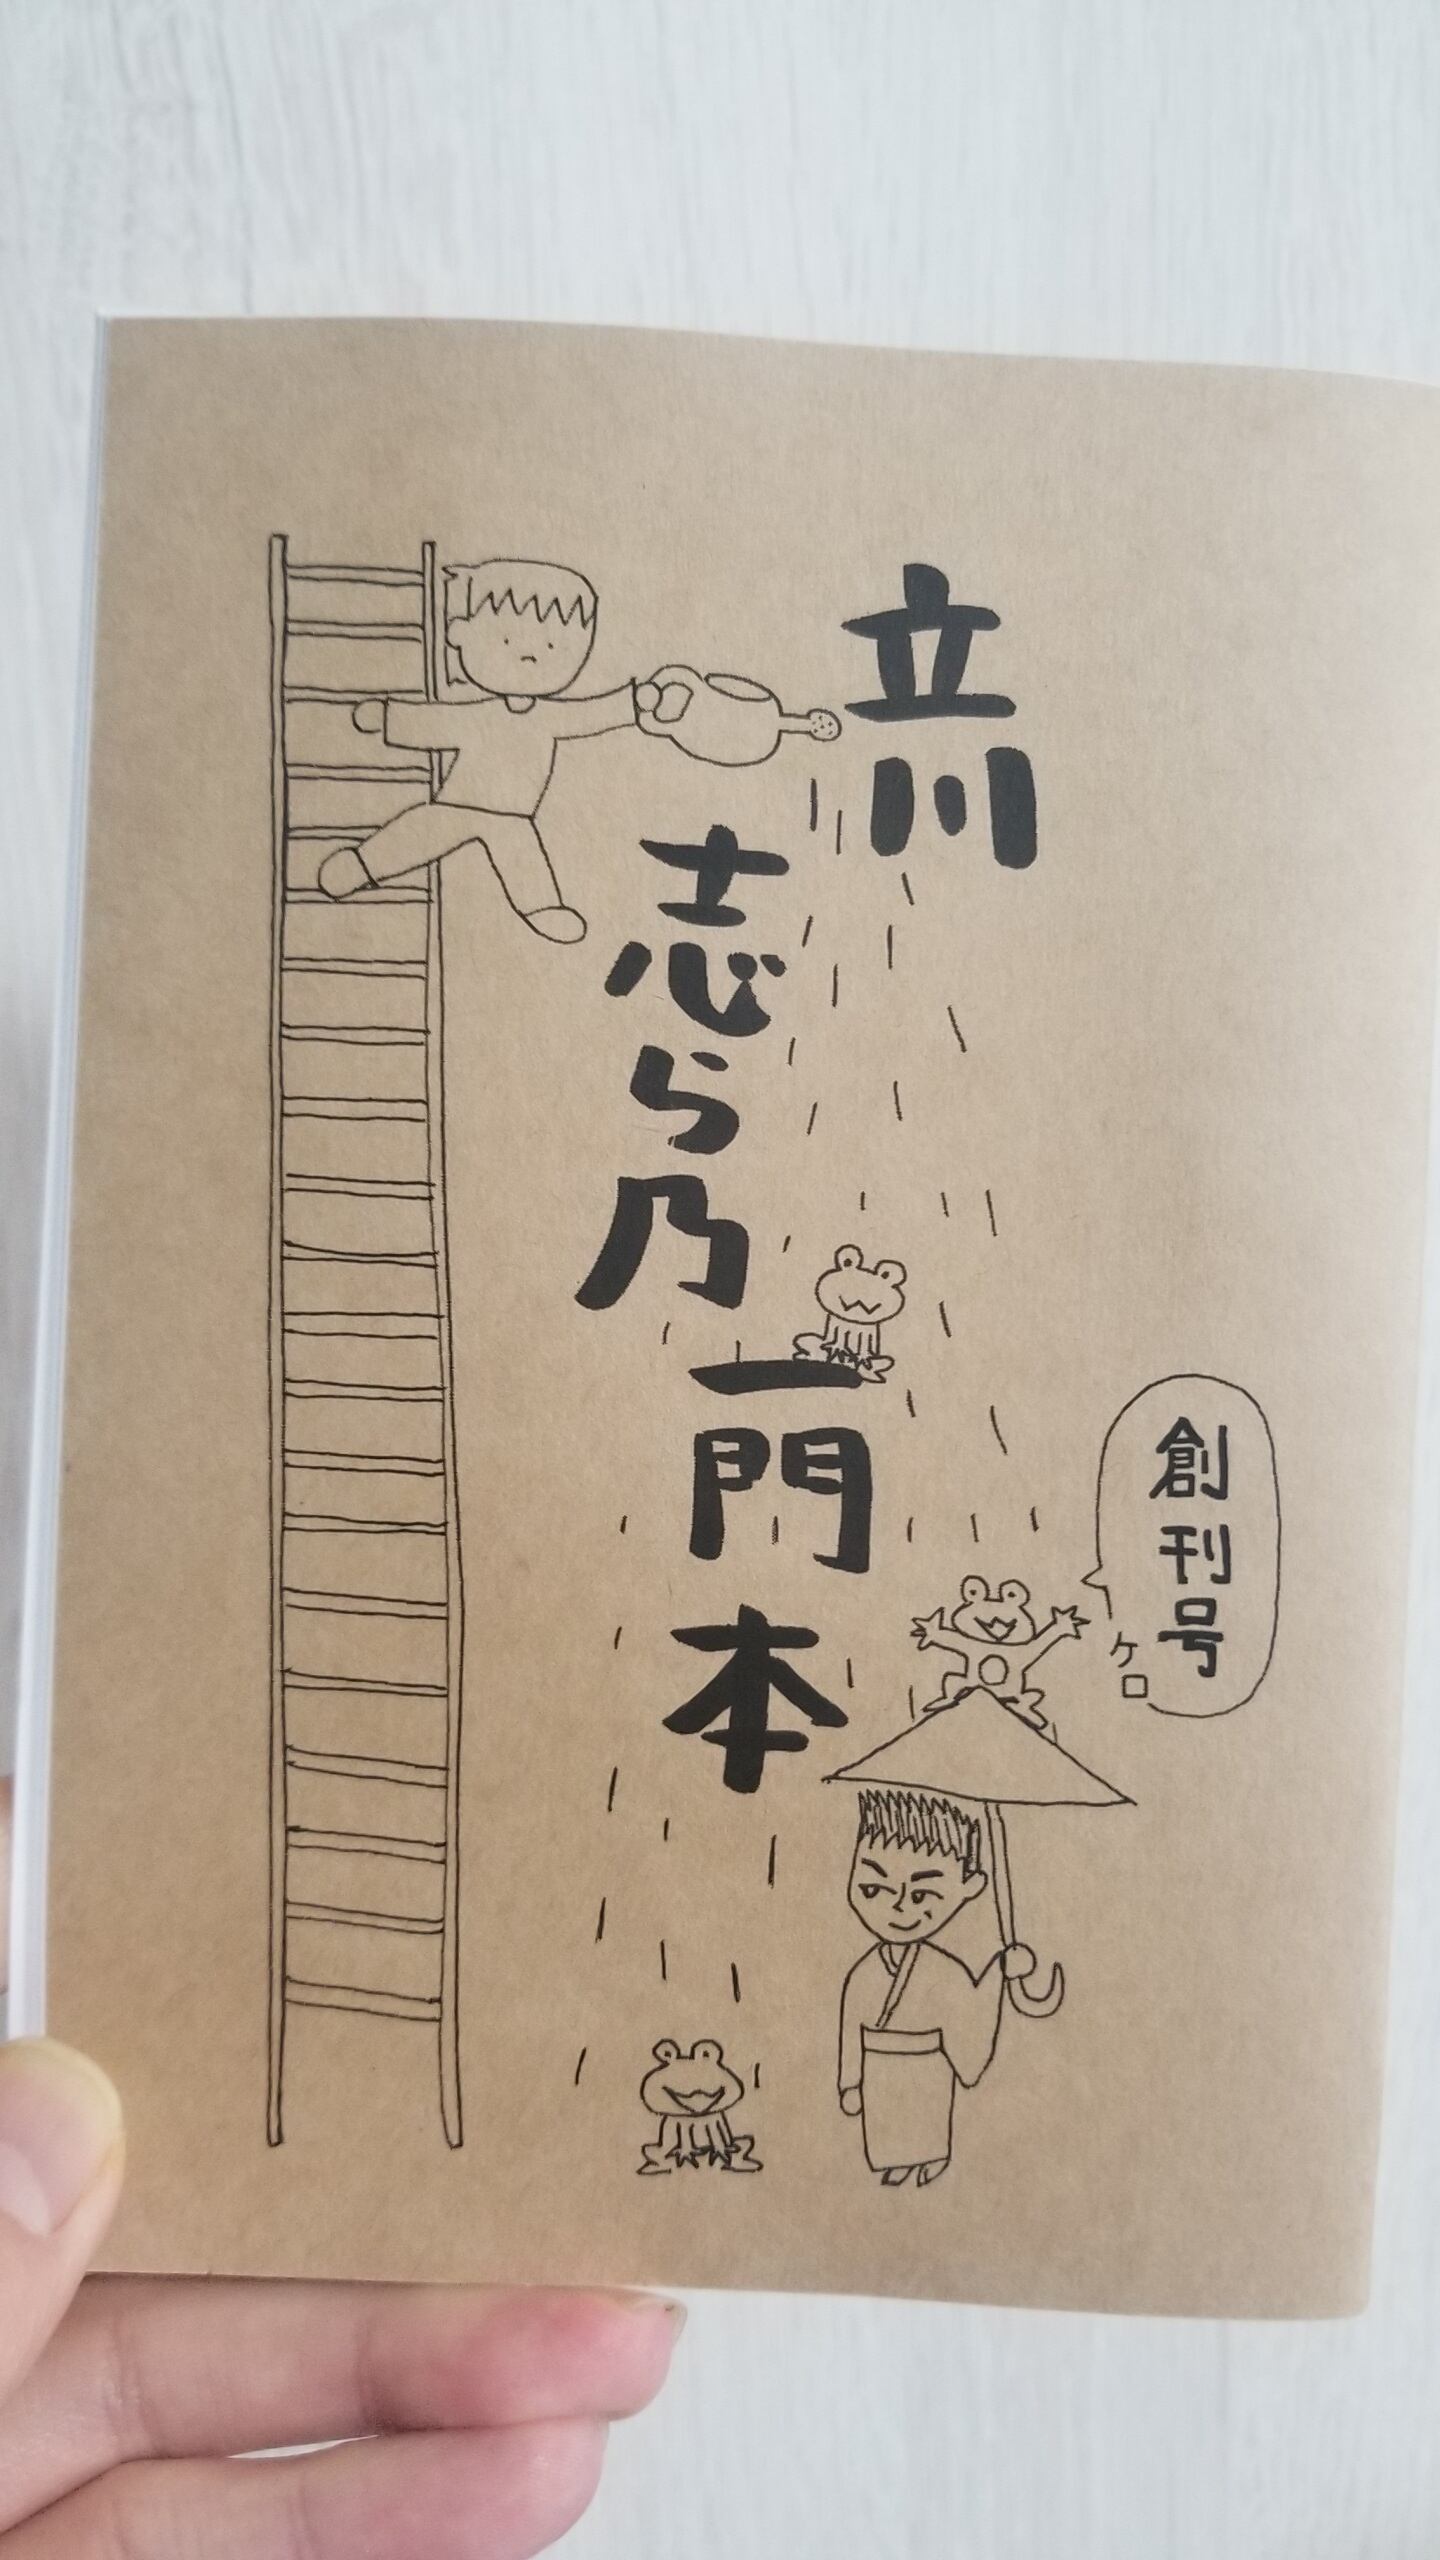 立川
志ら乃
一門
本
創刊号
ケロ